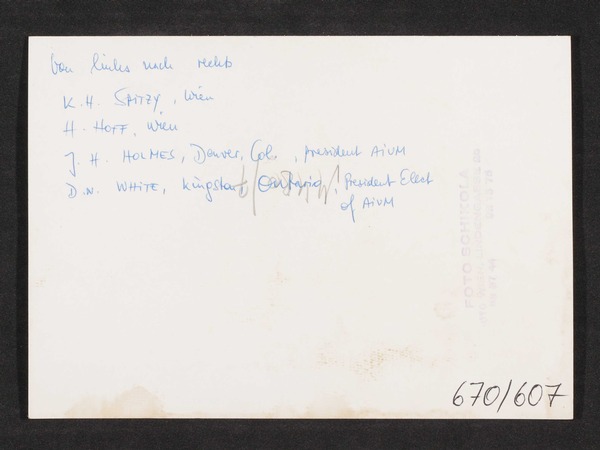 Von links nach rechts
K.H. SPITZY, Wien
H. HOFF, Wien
J. H. HOLMES, Denver, Col., President AIUM
D.N. WHITE, Kingston, Ontario, President Elect
of AIUM
670/607